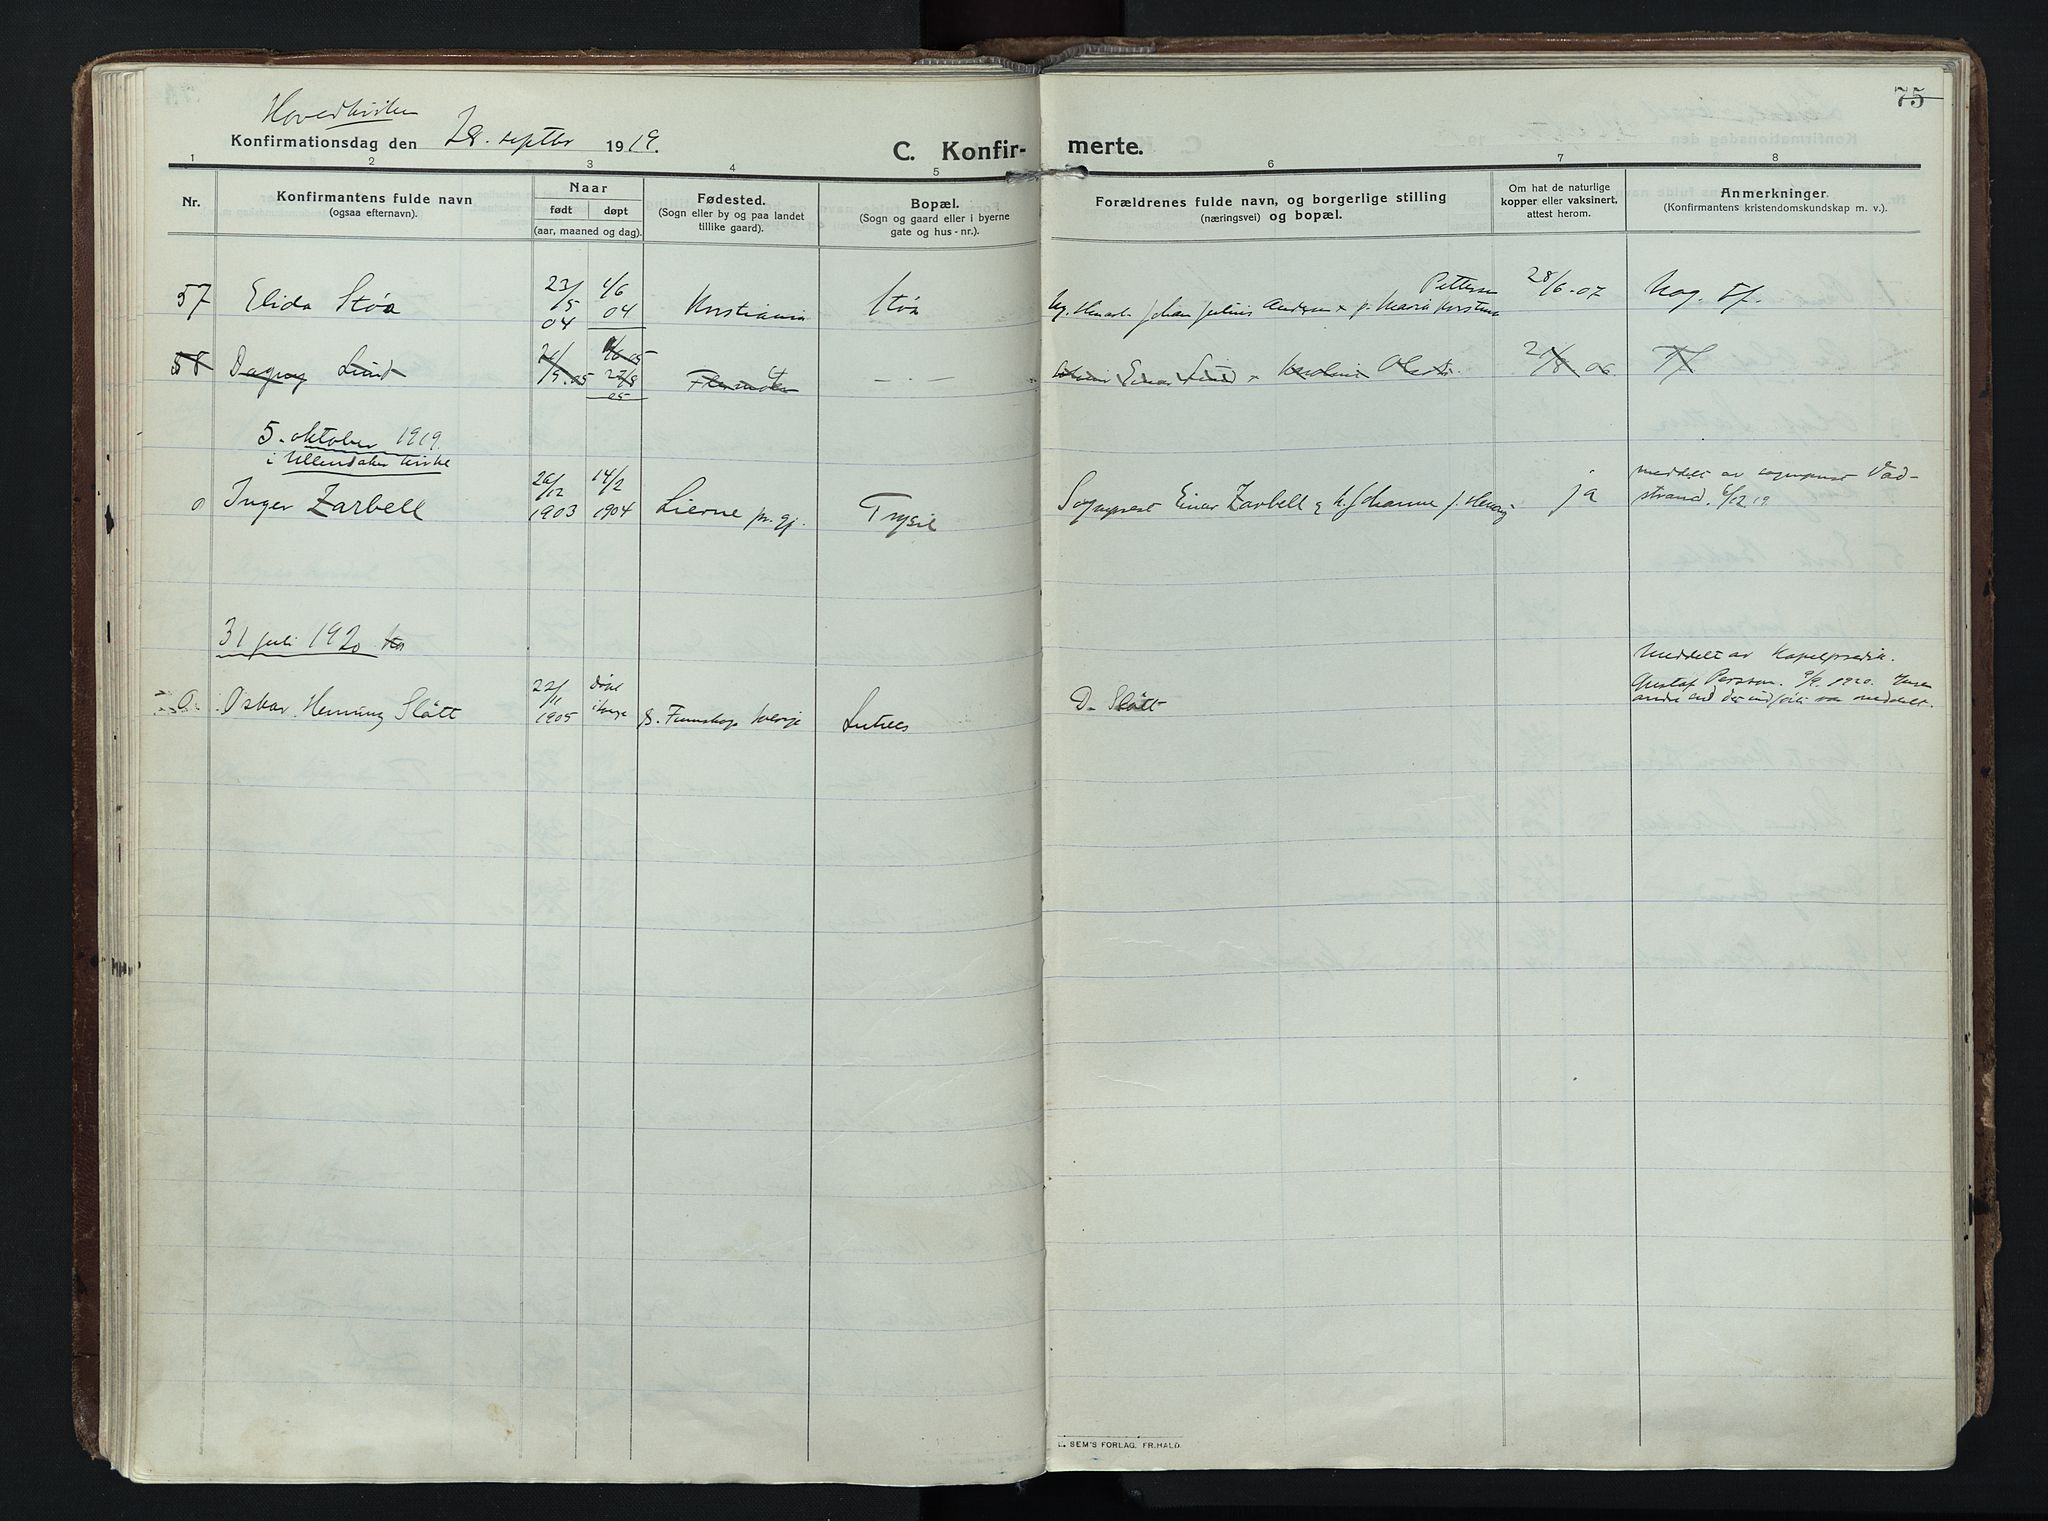 75
Hovedkirken
Konfirmationsdag den 28. septbr 1919.
C. Konfir- merte.
1 2 3 4 5 6 7 8
Nr.
Konfirmantens fulde navn
(ogsaa efternavn).
Naar
født døpt
(aar, maaned og dag).
Fødested.
(Sogn eller by og paa landet
tillike gaard).
Bopæl.
(Sogn og gaard eller i byerne
gate og hus-nr.).
Forældrenes fulde navn, og borgerlige stilling
(næringsvei) og bopæl.
Om hat de naturlige
kopper eller vaksinert,
attest herom.
Anmerkninger.
(Konfirmantens kristendomskundskap m. v.).
57 Elida Støa 23/5 04 1/6 04 Kristiania Støa
Pettersen
Johan Julius Andersen Maria 28/6-07 Nog. Tf.
58 Dagny Lund 05 27/8 05 -"- Einar Lund Karoline 21/8 06 Tf
5. oktober 1919
i Ullensaker kirke
0 Inger Zarbell 26/12 1903 14/2 1904 Lierne pr. gj. Trysil Sogneprest Einar Zarbell & h. Johanne f. ja
meddelt av sogneprest Vad-
strand. 6/12 19
31 juli 1920
0 Oskar Henning Slått 22/11 1905 Døpt S. Finnskog Sverige Lutnes D. Slått
Meddelt av Kapelpredik.
Gustaf Persson. 9/9 1920. Ingen
andre end de indførte var meddelt.
E. SEM'S FORLAG. FR.HALD.